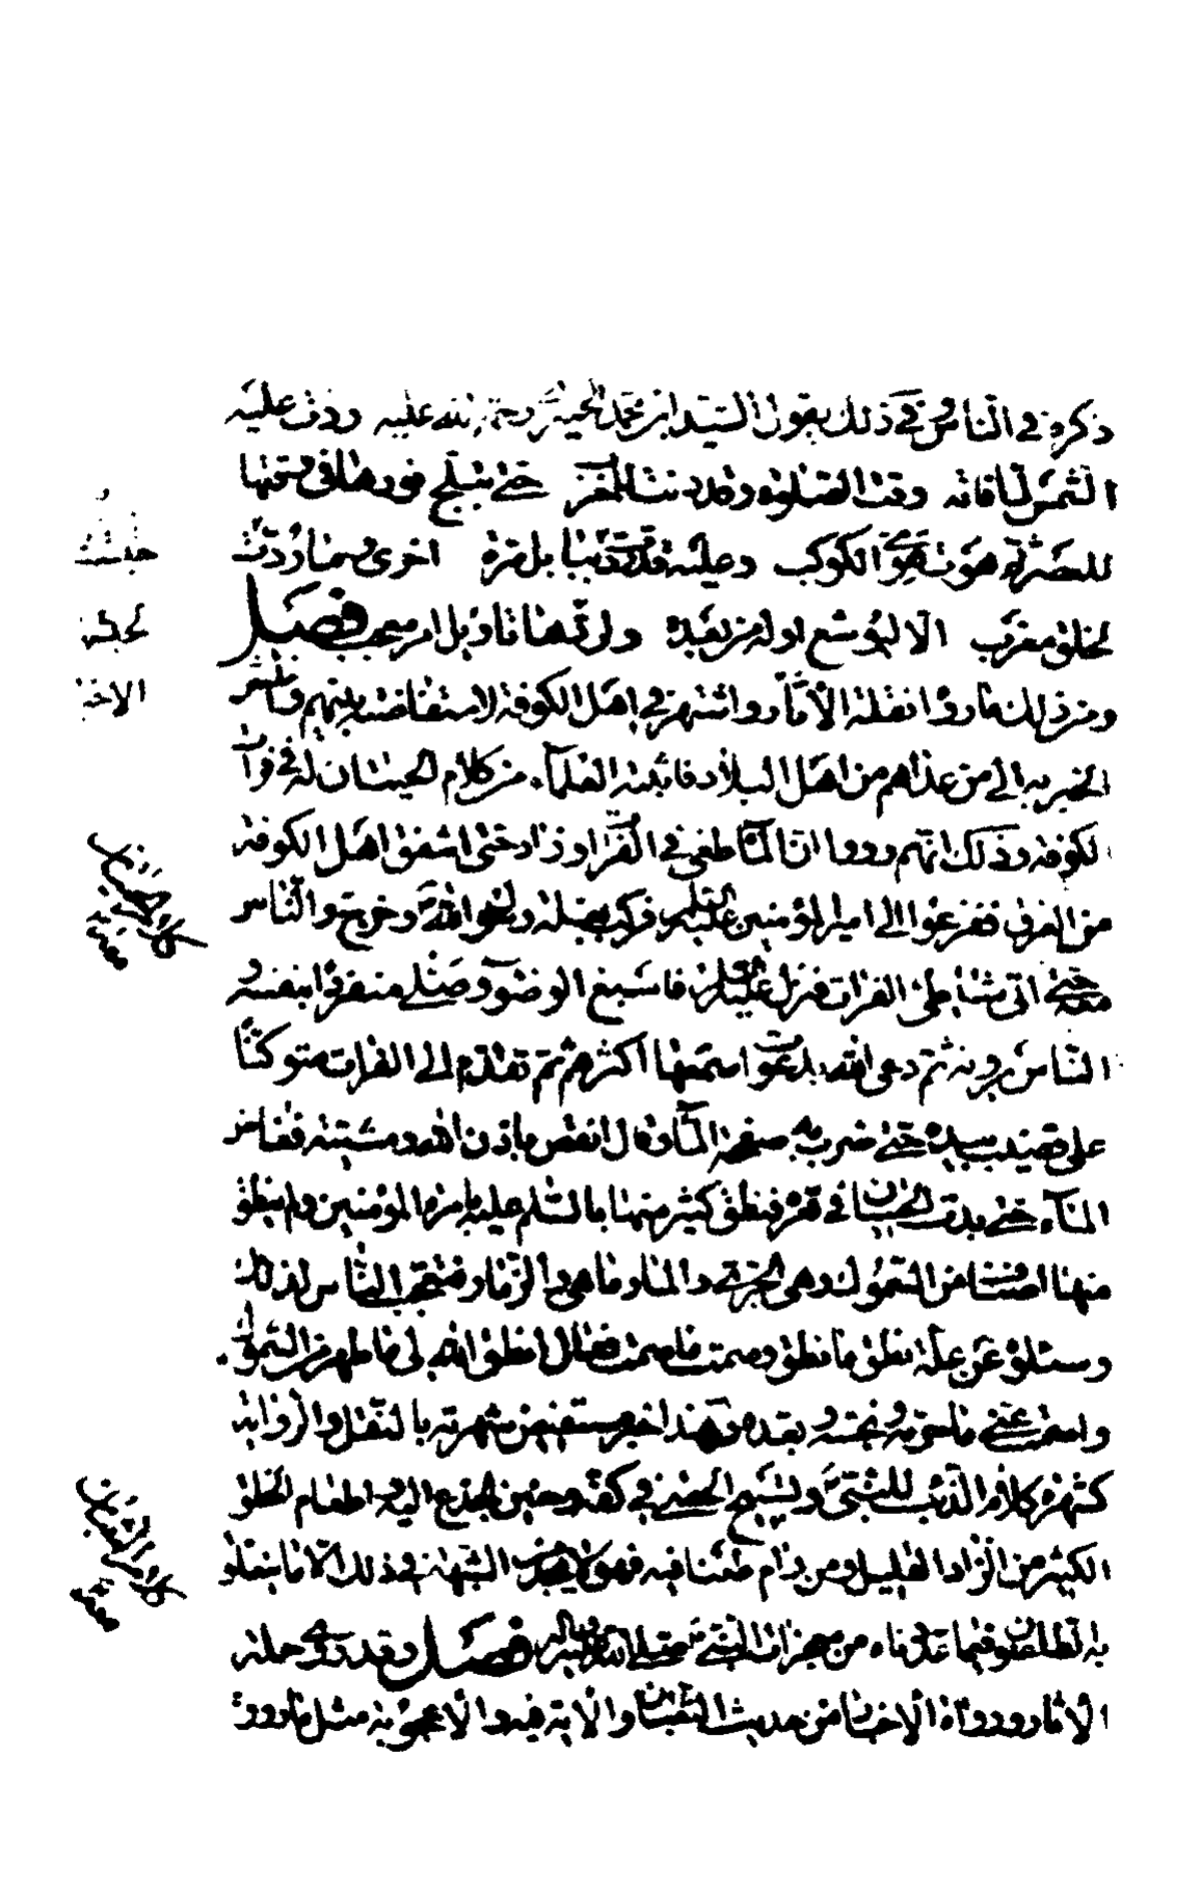 ذكره في الناس وفي ذلك يقول السيد ابن محمد الحميري رحمة الله عليه ردت عليه
الشمس لما فاته وقت الصلوة وقد دنت للمغرب حتى تبلج نورها في وقتها
للعصر ثم هوت هوي الكوكب وعليه قد ردت ببابل مرة اخرى وما ردت
لخلق مغرب الا ليوشع اوله من بعده ولردها تاويل امر معجب فصل
ومن ذلك ما رواه نقلة الآثار واشتهر في اهل الكوفة لاستفاضته بينهم وانتشر
الخبر به الى من عداهم من اهل البلاد فاثبته العلماء من كلام الحيتان له في فرات
الكوفة وذلك انهم رووا ان الماء طغى في الفرات وزاد حتى اشفق اهل الكوفة
من الغرق ففزعوا الى امير المؤمنين عليه السلم فركب بغلة رسول الله وخرج والناس
معه حتى اتى شاطئ الفرات فنزل عليه السلم فاسبغ الوضوء وصلى منفردا بنفسه و
الناس يرونه ثم دعى الله بدعوات سمعها اكثرهم ثم تقدم الى الفرات متوكئا
على قضيب بيده حتى ضرب به صفحة الماء وقال انقص باذن الله ومشيته فغاض
الماء حتى بدت الحيتان في قعره فنطق كثير منها بالسلم عليه بامرة المؤمنين ولم ينطق
منها اصناف من السموك وهي الجري والمار ماهي والزمار فتعجب الناس لذلك
وسئلوه عن علة نطق ما نطق وصمت ما صمت فقال انطق الله لي ما طهر من السموك
واصمت عني ما حرمه ونجسه وبعده وهذا خبر مستفيض شهرته بالنقل والرواية
كشهرة كلام الذئب للنبي وتسبيح الحصى في كفه وحنين الجذع اليه واطعام الخلق
الكثير من الزاد القليل ومن رام طعنا فيه فهو لا يجد من الشبهة في ذلك الا ما يتعلق
به الطاعنون فيما عددناه من معجزات النبي صلى الله عليه وآله فصل وقد روى حملة
الآثار ورواة الاخبار من حديث الثعبان والآية فيه والاعجوبة مثل ما رووه
كلام الحيتان معه
كلام الثعبان معه